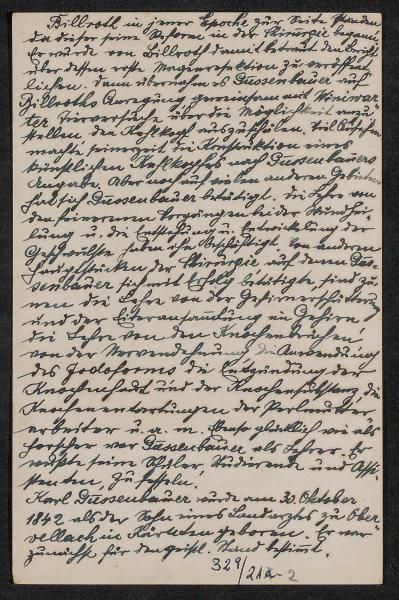 Billroth in jener Epoche zur Seite standen
da dieser seine Reform in der Chirurgie begann.
Er wurde von Billroth damit betraut den Bericht
über dessen erste Magenresektion zu veröffent
lichen. Dann übernahm es Gussenbauer auf
Billroths Anregung gemeinsam mit Winiwar-
ter Tierversuche über die Möglichkeit anzu
stellen den Kehlkopf auszuschälen. Viel Aufsehen
machte seinerzeit die Konstruktion eines
künstlichen Kehlkopfes nach Gussenbauers
Angabe. Aber noch auf vielen anderen Gebieten
hat sich Gussenbauer betätigt. Die Lehre von
den feinernen Vorgängen bei der Wundhei-
lung u. die Entstehung u. Entwicklung der
Geschwülste haben ihn beschäftigt. Von anderen
Hauptstücken der Chirurgie auf denen Gus-
senbauer sich mit Erfolg betätigte, sind zu
nennen die Lehre von der Gehirnerschütterung
und der Eiteransammlung im Gehirn,
die Lehre von den Knochenbrüchen,
von der Nervendehnung, die Anwendung
des Jodoforms die Entzündung der
Knochenhaut und der Knochensubstanz, die
Knochenentartungen der Perlmutter-
arbeiter u. a. m. Ebenso glücklich wie als
Forscher war Gussenbauer als Lehrer. Er
wußte seine Schüler, Studierende und Assi-
stenten, zu fesseln.
Karl Gussenbauer wurde am 30. Oktober
1842 als der Sohn eines Landarztes zu Ober
vellach in Kärnten geboren. Er war
zunächst für den geistl. Stand bestimmt.
329/212-2